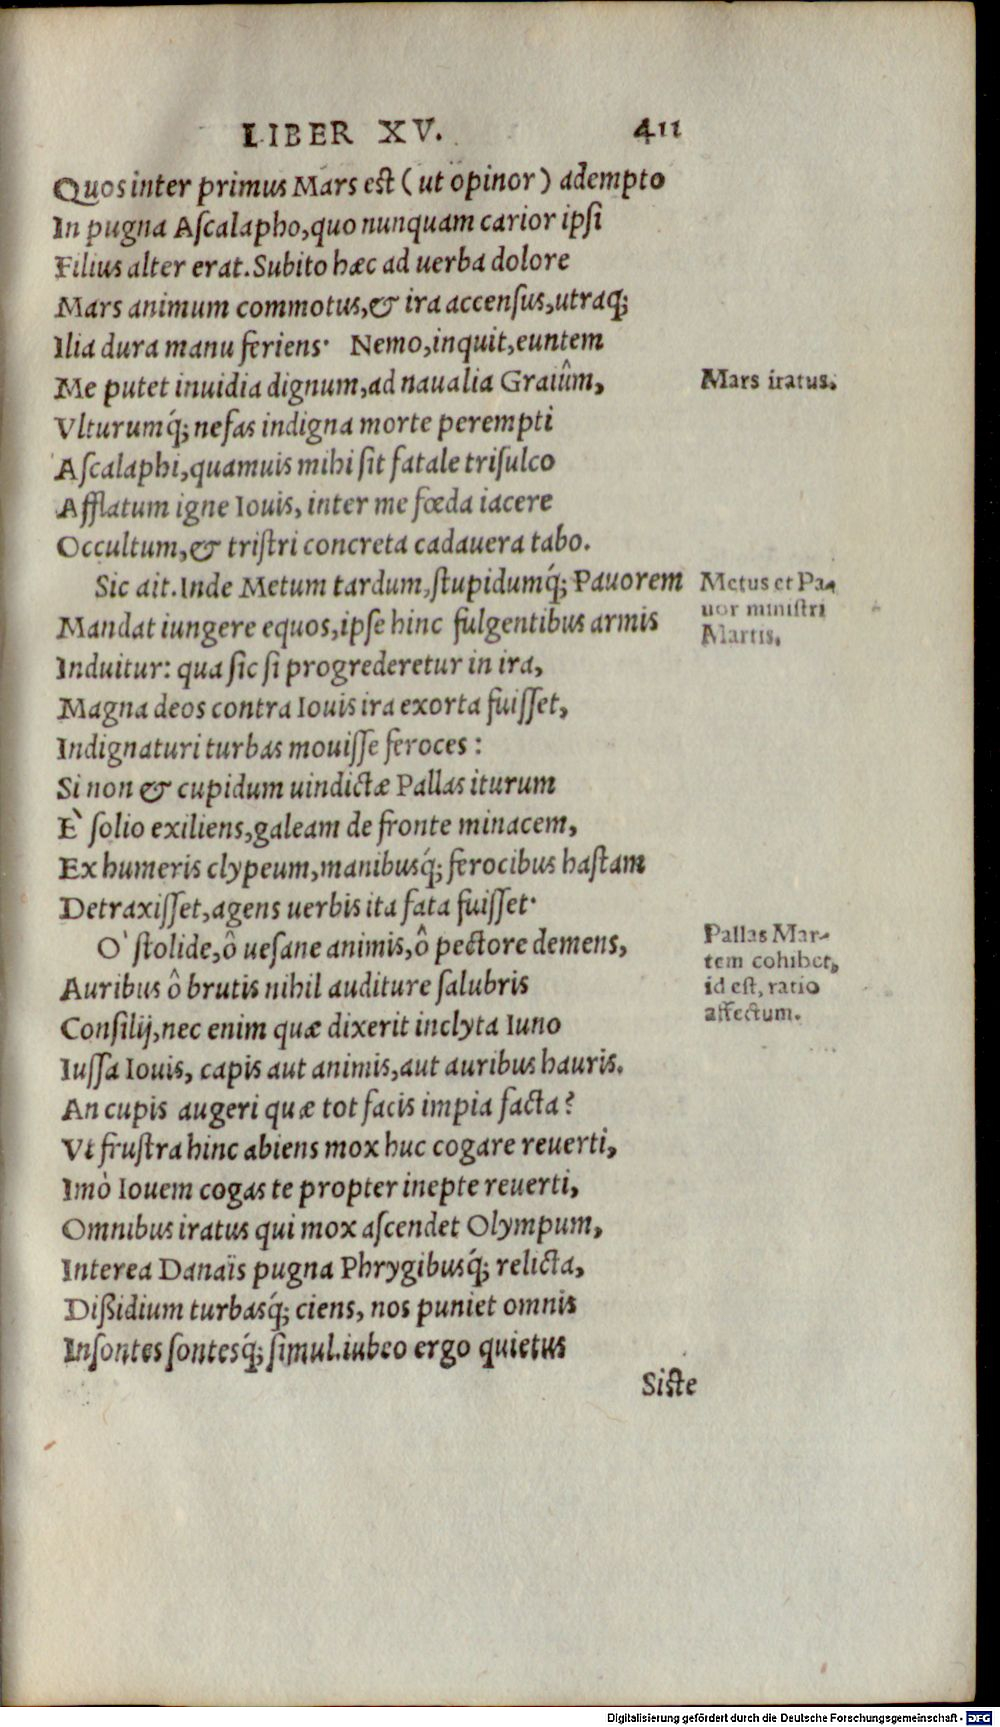 LIBER XV. 411
Quos inter primus Mars est (ut opinor) adempto
In pugna Ascalapho, quo nunquam carior ipsi
Filius alter erat. Subito hæc ad uerba dolore
Mars animum commotus, & ira accensus, utraq;
Ilia dura manu feriens· Nemo, inquit, euntem
Me putet inuidia dignum, ad naualia Graiûm,
Mars iratus.
Vlturumq́; nefas indigna morte perempti
Ascalaphi, quamuis mihi sit fatale trisulco
Afflatum igne Iouis, inter me fœda iacere
Occultum, & tristri concreta cadauera tabo.
Sic ait. Inde Metum tardum, stupidumq́; Pauorem
Metus et Pa-
uor ministri
Martis.
Mandat iungere equos, ipse hinc fulgentibus armis
Induitur: qua sic si progrederetur in ira,
Magna deos contra Iouis ira exorta fuisset,
Indignaturi turbas mouisse feroces:
Si non & cupidum uindictæ Pallas iturum
È solio exiliens, galeam de fronte minacem,
Ex humeris clypeum, manibusq́; ferocibus hastam
Detraxisset, agens uerbis ita fata fuisset·
O' stolide, ô uesane animis, ô pectore demens,
Pallas Mar-
tem cohibet,
id est, ratio
affectum.
Auribus ô brutis nihil auditure salubris
Consilij, nec enim quæ dixerit inclyta Iuno
Iussa Iouis, capis aut animis, aut auribus hauris.
An cupis augeri quæ tot facis impia facta?
Vt frustra hinc abiens mox huc cogare reuerti,
Imò Iouem cogas te propter inepte reuerti,
Omnibus iratus qui mox ascendet Olympum,
Interea Danaïs pugna Phrygibusq́; relicta,
Dißidium turbasq́; ciens, nos puniet omnis
Insontes sontesq́; simul. iubeo ergo quietus
Siste
Digitalisierung gefördert durch die Deutsche Forschungsgemeinschaft - DFG